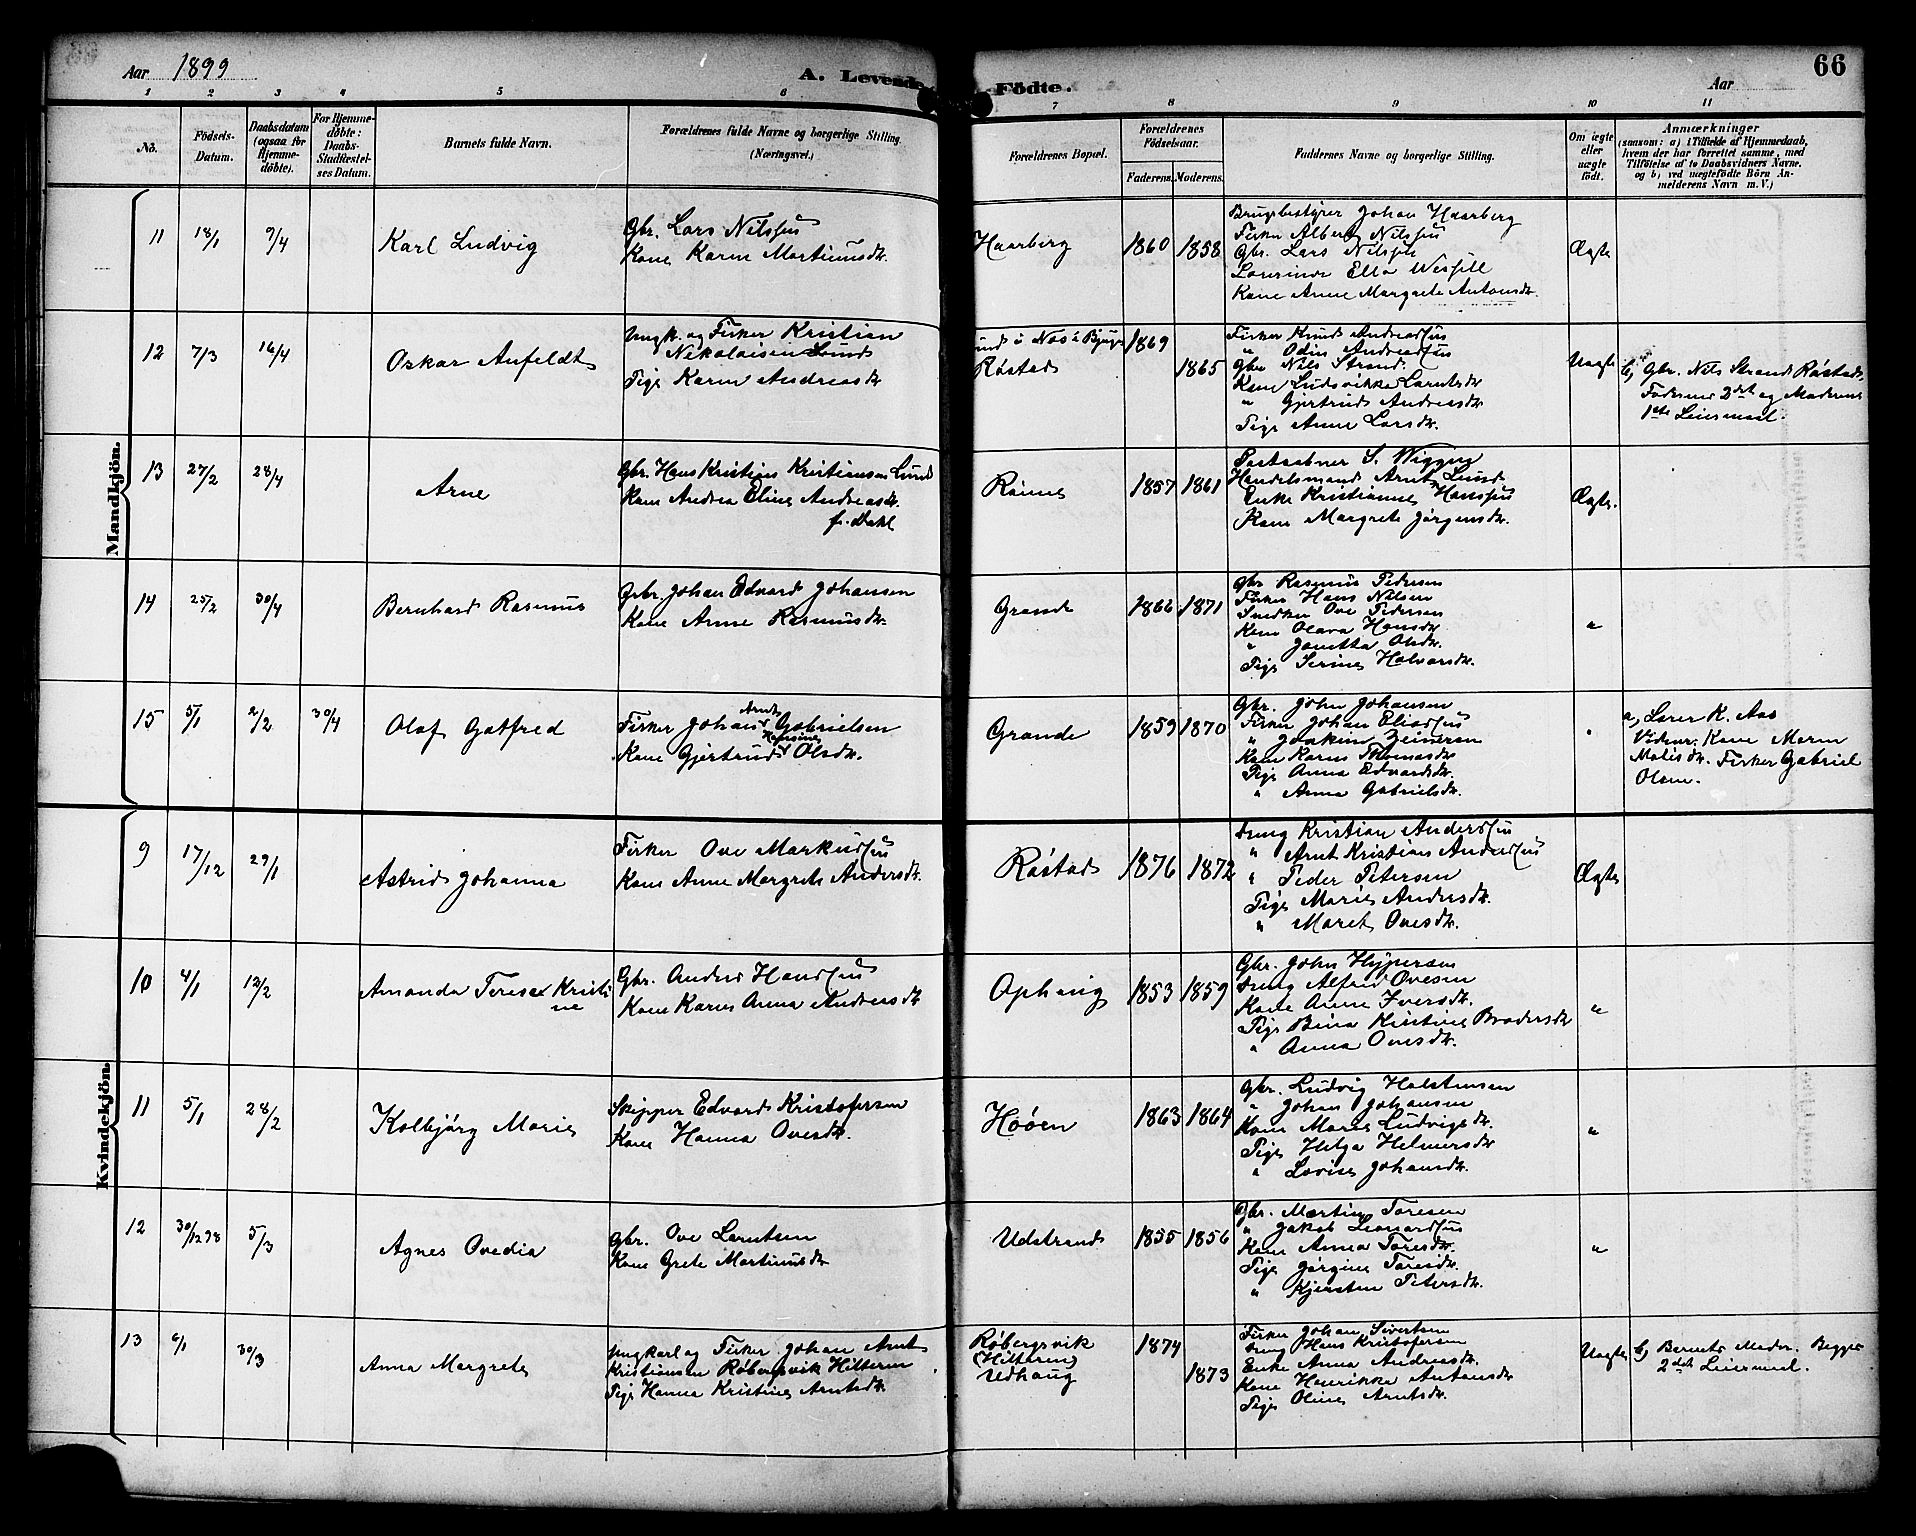 Aar 1899
A. Levende Födte.
Aar
66
1 2 3 4 5 6 7 8 9 10 11
No.
Födsels-Datum.
Daabsdatum (ogsaa for Hjemmedøbte).
For Hjemmedøbte: Daabs-Stadfæstelses Datum.
Barnets fulde Navn.
Forældrenes fulde Navne og borgerlige Stilling. (Næringsvei.)
Forældrenes Bopæl.
Forældrenes Födselsaar.
Faderens. Moderens.
Faddernes Navne og borgerlige Stilling.
Om ægte eller uægte født.
Anmærkninger
(saasom: a) i Tilfælde af Hjemmedaab,
hvem der har forrettet samme, med
Tilföielse af to Daabsvidners Navne.
og b) ved uægtefödte Börn An-
melderens Navn m. V.)
Mandkjön.
11 18/1 9/4 Karl Ludvig
Gbr. Lars Nilssen
Kone Karen Martinusdr.
Haarberg 1860 1858
Brugsbestyrer Johan Haarberg
Fisker Albert Nilssen
Gbr. Lars Nilssen
Lærerinde Ella Wessell
Kone Anne Margrete Antonsdr.
Ægte
12 7/3 16/4 Oskar Anfeldt
Ungk. og Fisker Kristian
Nikolaisen Lund
Pige Karen Andreasdr
Lund i Næs i Bjugn
Røstad
1869
1865
Fisker Knud Andreassen
" Odin Andreassen
Gbr Nils Strand
Kone Ludvikke Larntsdr
" Gjertrud Andreasdr
Pige Anne Larsdr.
Uægte
b, Gbr. Nils Strand Røstad.
Faderens 2det og Moderens
1ste Leiermaal.
13 27/2 28/4 Arne
Gbr. Hans Kristian Kristiansen Lund
Kone Andrea Eline Andreasdr.
f. Dahl
Rømne 1857 1861
Postaabner S. Wigger
Handelsmand Arnt Lund
Enke Kristianne Hanssen
Kone Margrete Jørgensdr.
Ægte.
14 25/2 30/4 Bernhard Rasmus
Gbr. Johan Edvard Johansen
Kone Anne Rasmusdr.
Grande 1866 1871
Gbr Rasmus Pedersen
Fisker Hans Nilsen
Snedker Ove Pedersen
Kone Olava Hansdr
" Jonetta Olsdr.
Pige Serine Halvorsdr.
"
15 5/1 2/2 30/4 Olaf Gotfred
Fisker Johan Arnt Gabrielsen
Kone Gjertrud Hansine Olsdr.
Grande 1859 1870
Gbr. John Johansen
Fisker Johan Eliassen
" Joakim Zeinersen
Kone Karen Thomasdr
Pige Anna Edvardsdr.
" Anna Gabrielsdr.
"
a, Lærer K. Aas
Vidner: Kone Maren
Matisdr. Fisker Gabriel
Olsen.
Kvindekjön.
9 17/12 29/1 Astrid Johanna
Fisker Ove Markussen
Kone Anne Margrete Andersdr.
Røstad 1876 1872
Dreng Kristian Anderssen
" Arnt Kristian Anderssen
" Peder Petersen
Pige Marie Andersdr.
" Maret Ovesdr.
Ægte
10 4/1 12/2 Amanda Terese Kristine
Gbr. Anders Hanssen
Kone Karen Anna Andreasdr
Ophaug 1853 1859
Gbr. John Hypersen
Dreng Alfred Ovesen
Kone Anne Iversdr.
Pige Bina Kristine Brodersdr
" Anna Ovesdr.
"
11 5/1 28/2 Kolbjørg Marie
Skipper Edvard Kristofersen
Kone Hanna Ovesdr.
Høøen 1863 1864
Gbr. Ludvig Holstensen
" Johan Johansen
Kone Maren Ludvigsdr.
Pige Helga Helmersdr
" Lovise Johansdr.
"
12 30/12 98 5/3 Agnes Ovedia
Gbr. Ove Larntsen
Kone Grete Martinusdr
Udstrand 1855 1856
Gbr. Martin Toresen
" Jakob Leonardsen
Kone Anna Toresdr.
Pige Jørgine Toresdr.
" Kjersten Petersdr.
"
13 6/1 30/3 Anna Margrete
Ungkarl og Fisker Johan Arnt
Kristiansen Røbergsvik Hitteren
Pige Hanna Kristine Arntsdr
Røbergsvik
(Hitteren)
Udhaug
1874
1873
Fisker Johan Sivertsen
Dreng Hans Kristofersen
Enke Anna Andreasdr.
Kone Henrikke Antonsdr
Pige Oline Arntsdr.
Uægte
b, Barnets Moder. Begges
2det Leiermaal.